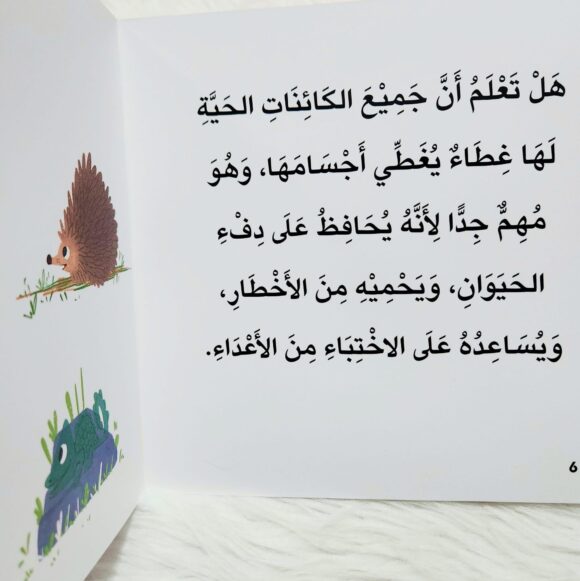 هَلْ تَعْلَمُ أَنَّ جَمِيْعَ الكَائِنَاتِ الحَيَّةِ
لَهَا غِطَاءٌ يُغَطِّي أَجْسَامَهَا، وَهُوَ
مُهِمٌّ جِدًّا لِأَنَّهُ يُحَافِظُ عَلَى دِفْءِ
الحَيَوَانِ، وَيَحْمِيْهِ مِنَ الأَخْطَارِ،
وَيُسَاعِدُهُ عَلَى الاخْتِبَاءِ مِنَ الأَعْدَاءِ.
6